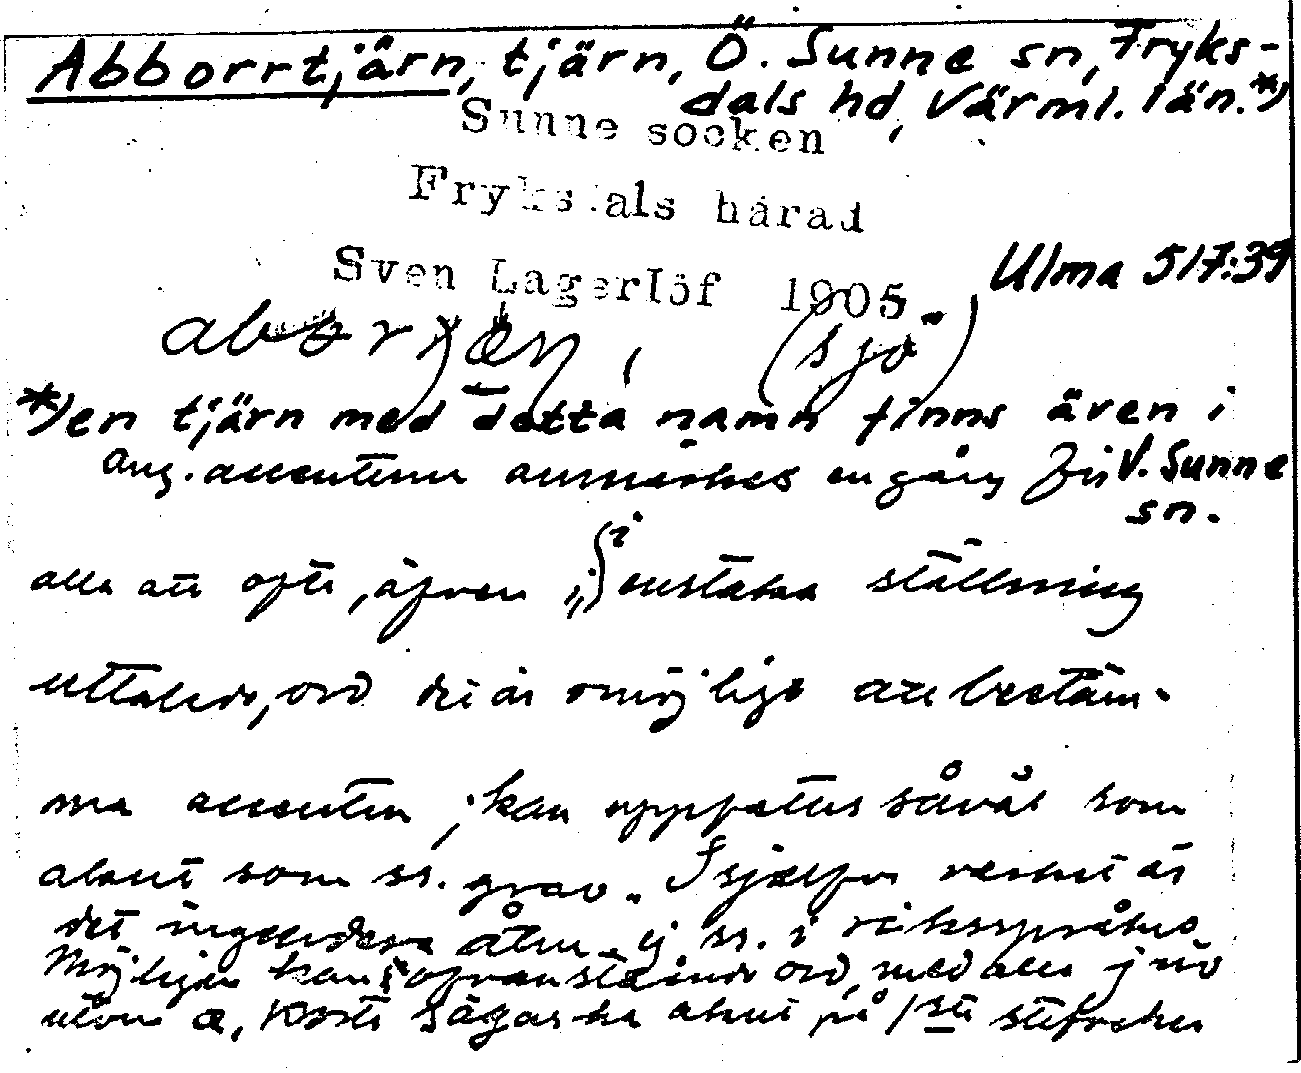 Abborrtjärn, tjärn, Ö. Sunne sn, Fryks-
dals hd, Värml. län.*)
Sunne socken
Fryksdals härad
Sven Lagerlöf 1905.
Ulma 517:39
(sjö)
*) en tjärn med detta namn finns även i
V. Sunne
sn.
Ang. accenten anmärkes en gång för
alla att ofta, äfven i enstaka ställning
uttalade, ord det är omöjligt att bestäm-
ma accenten; kan uppfattas såväl som
akut som ss. grav. Själfva verket är
det ingendera utan ej ss. i riksspråket
Möjligen kan ofvanstående ord, med
a, sägas ha akut på 1sta stafvelsen